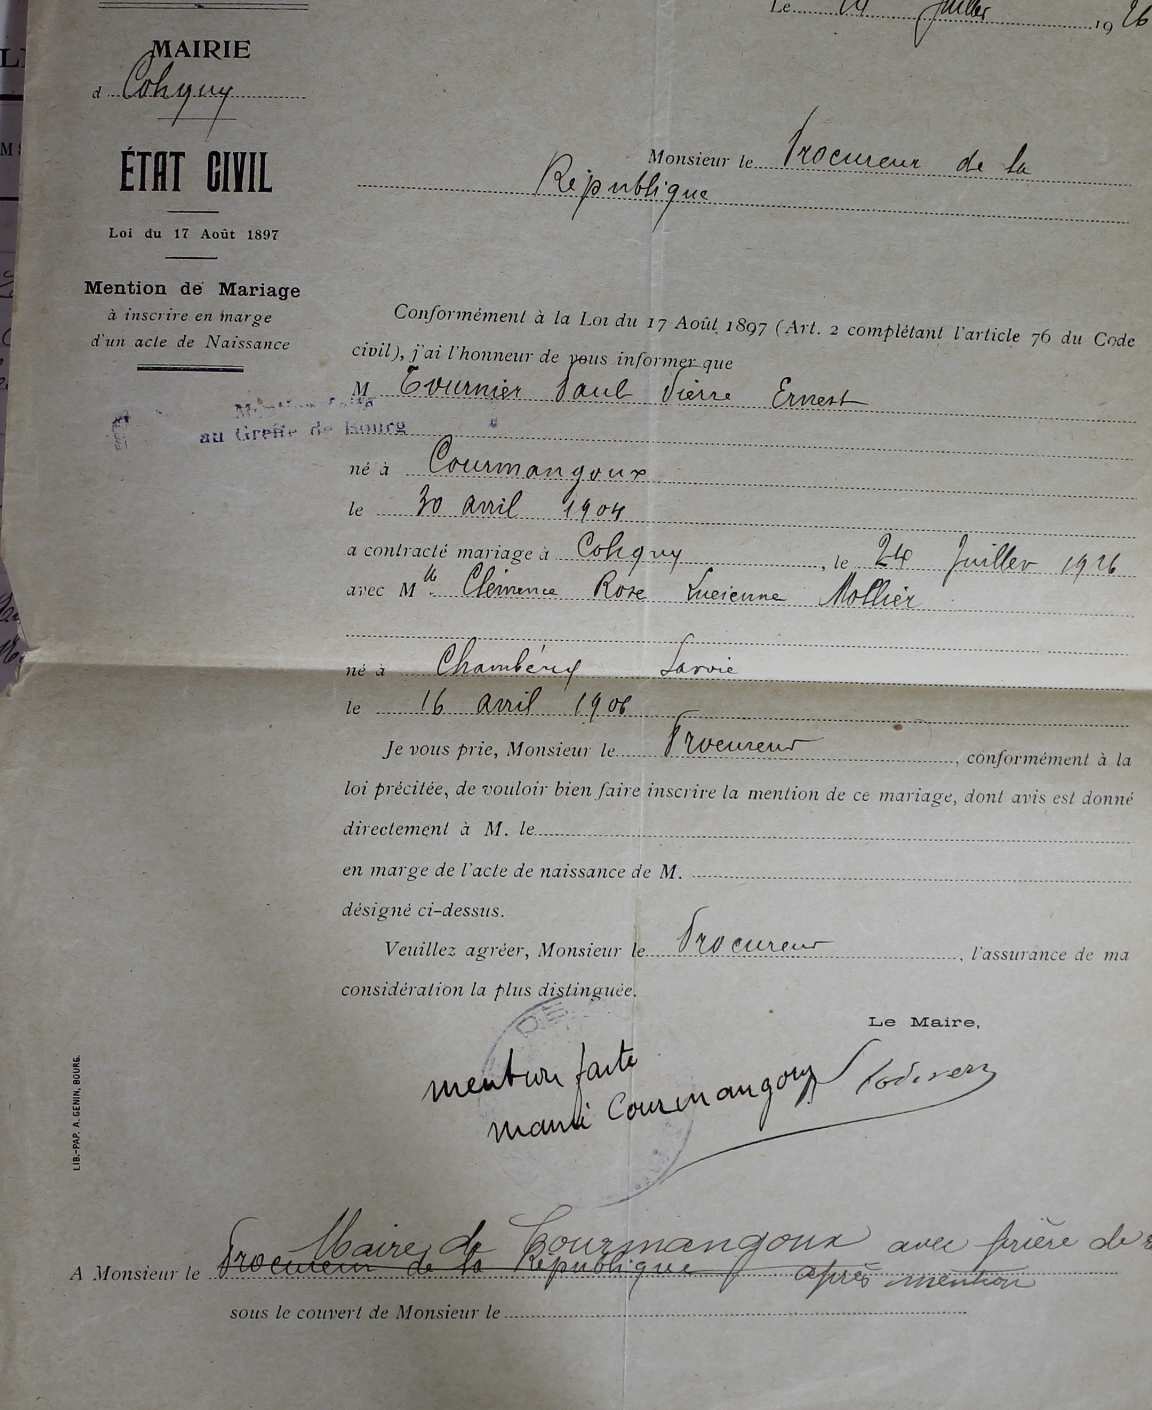 Le 24 Juillet 1926
MAIRIE
d Coligny
ÉTAT CIVIL
Loi du 17 Août 1897
Mention de Mariage
à inscrire en marge
d'un acte de Naissance
Monsieur le Procureur de la
République
Conformément à la Loi du 17 Août 1897 (Art. 2 complétant l'article 76 du Code
civil), j'ai l'honneur de vous informer que
M Tournier Paul Pierre Ernest
Mention faite
au Greffe de Bourg
né à Courmangoux
le 30 avril 1904
a contracté mariage à Coligny, le 24 Juillet 1926
avec Mlle Clémence Rose Lucienne Mollier
né à Chambéry Savoie
le 16 avril 1906
Je vous prie, Monsieur le Procureur, conformément à la
loi précitée, de vouloir bien faire inscrire la mention de ce mariage, dont avis est donné
directement à M. le
en marge de l'acte de naissance de M.
désigné ci-dessus.
Veuillez agréer, Monsieur le Procureur, l'assurance de ma
considération la plus distinguée.
Le Maire,
mention faite
Courmangoux
LIB.-PAP. A. GENIN, BOURG.
Maire de Courmangoux avec prière de
A Monsieur le Procureur de la République après mention
sous le couvert de Monsieur le